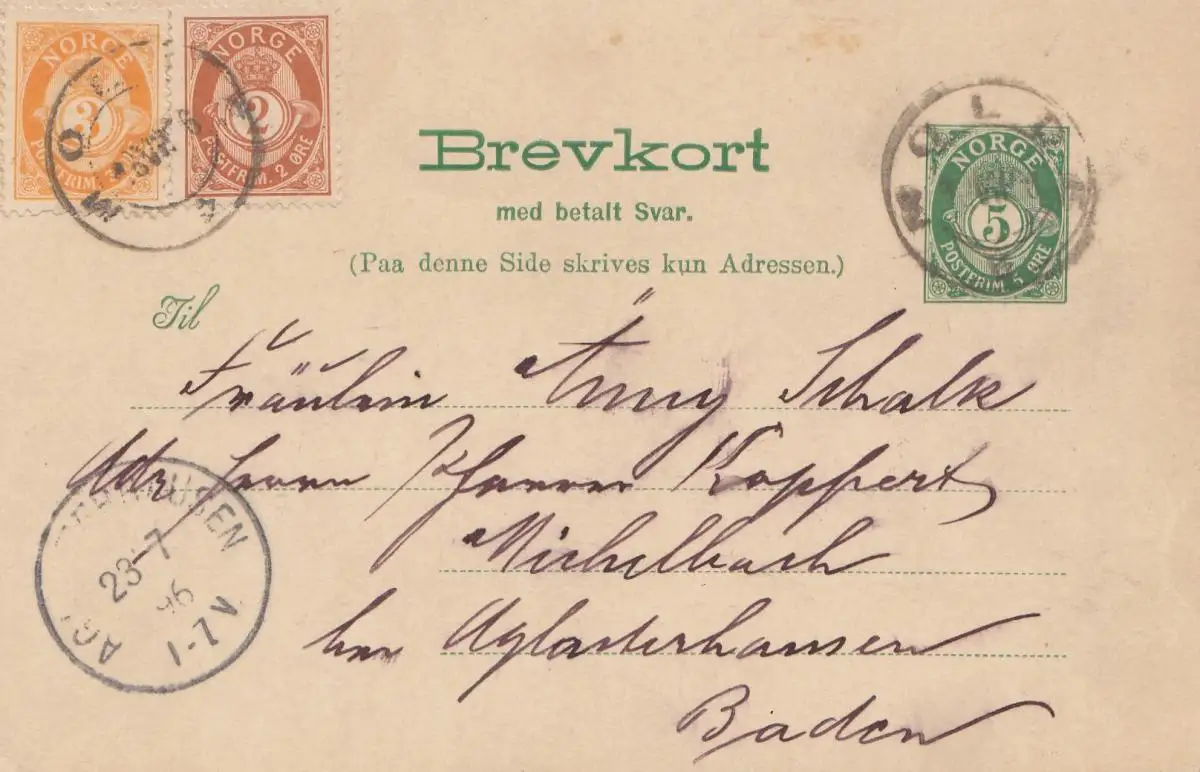 NORGE
3
POSTFRIM. 3
NORGE
2
POSTFRIM. 2 ØRE
MOLDE
Brevkort
med betalt Svar.
(Paa denne Side skrives kun Adressen.)
MOLDE
NORGE
5
POSTFRIM. 5 ØRE
Til
Fräulein Änny Schalk
Adr. Herrn Pfarrer Koppert
Michelbach
bei Aglasterhausen
Baden
23-7
96
1-7 V